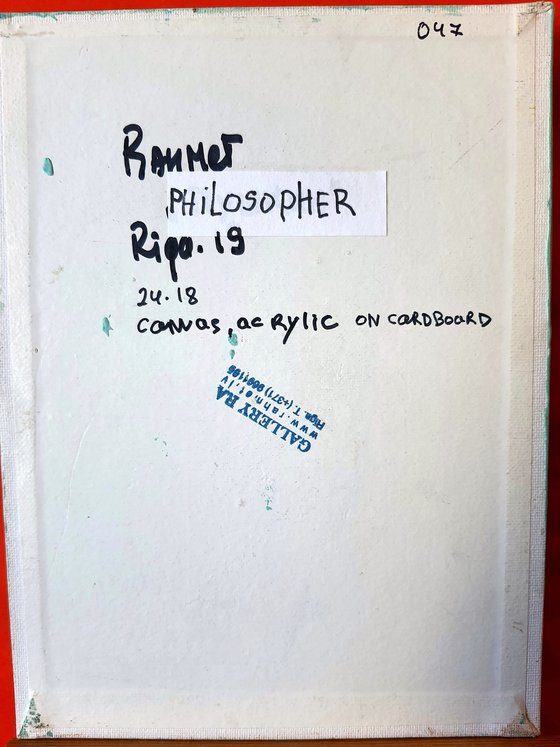 047
Rahmet
PHiLOSOPHER
Riga. 19
24.18
canvas, acrylic on cardboard
GALLERY RA
www.rahmet.lv
Riga. T. (+371)